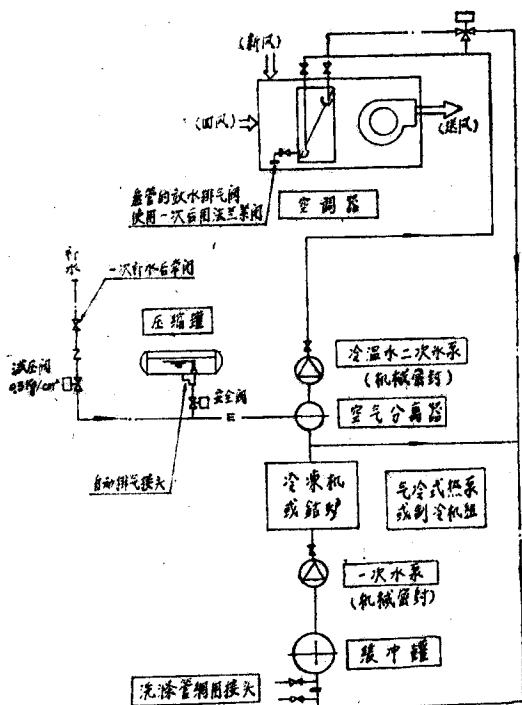 (新风)
(回风)
(送风)
盘管的放水排气阀
使用一次后用法兰密闭
空调器
补水
一次补水后常闭
压缩罐
减压阀
安全阀
E
自动排气接头
冷温水二次水泵
(机械密封)
空气分离器
冷冻机
或锅炉
气冷式热泵
或制冷机组
一次水泵
(机械密封)
缓冲罐
洗涤管网用接头